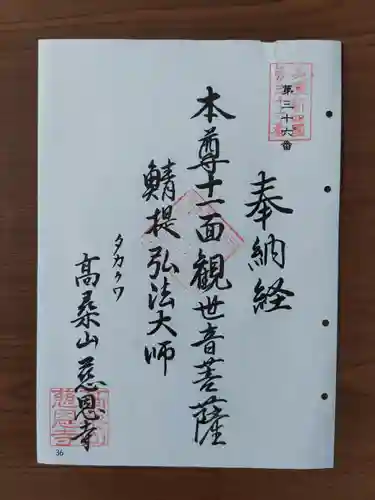 第三十六番
奉納経
本尊十一面観世音菩薩
鯖提弘法大師
タカクワ
高桑山慈恩寺
慈恩寺
36